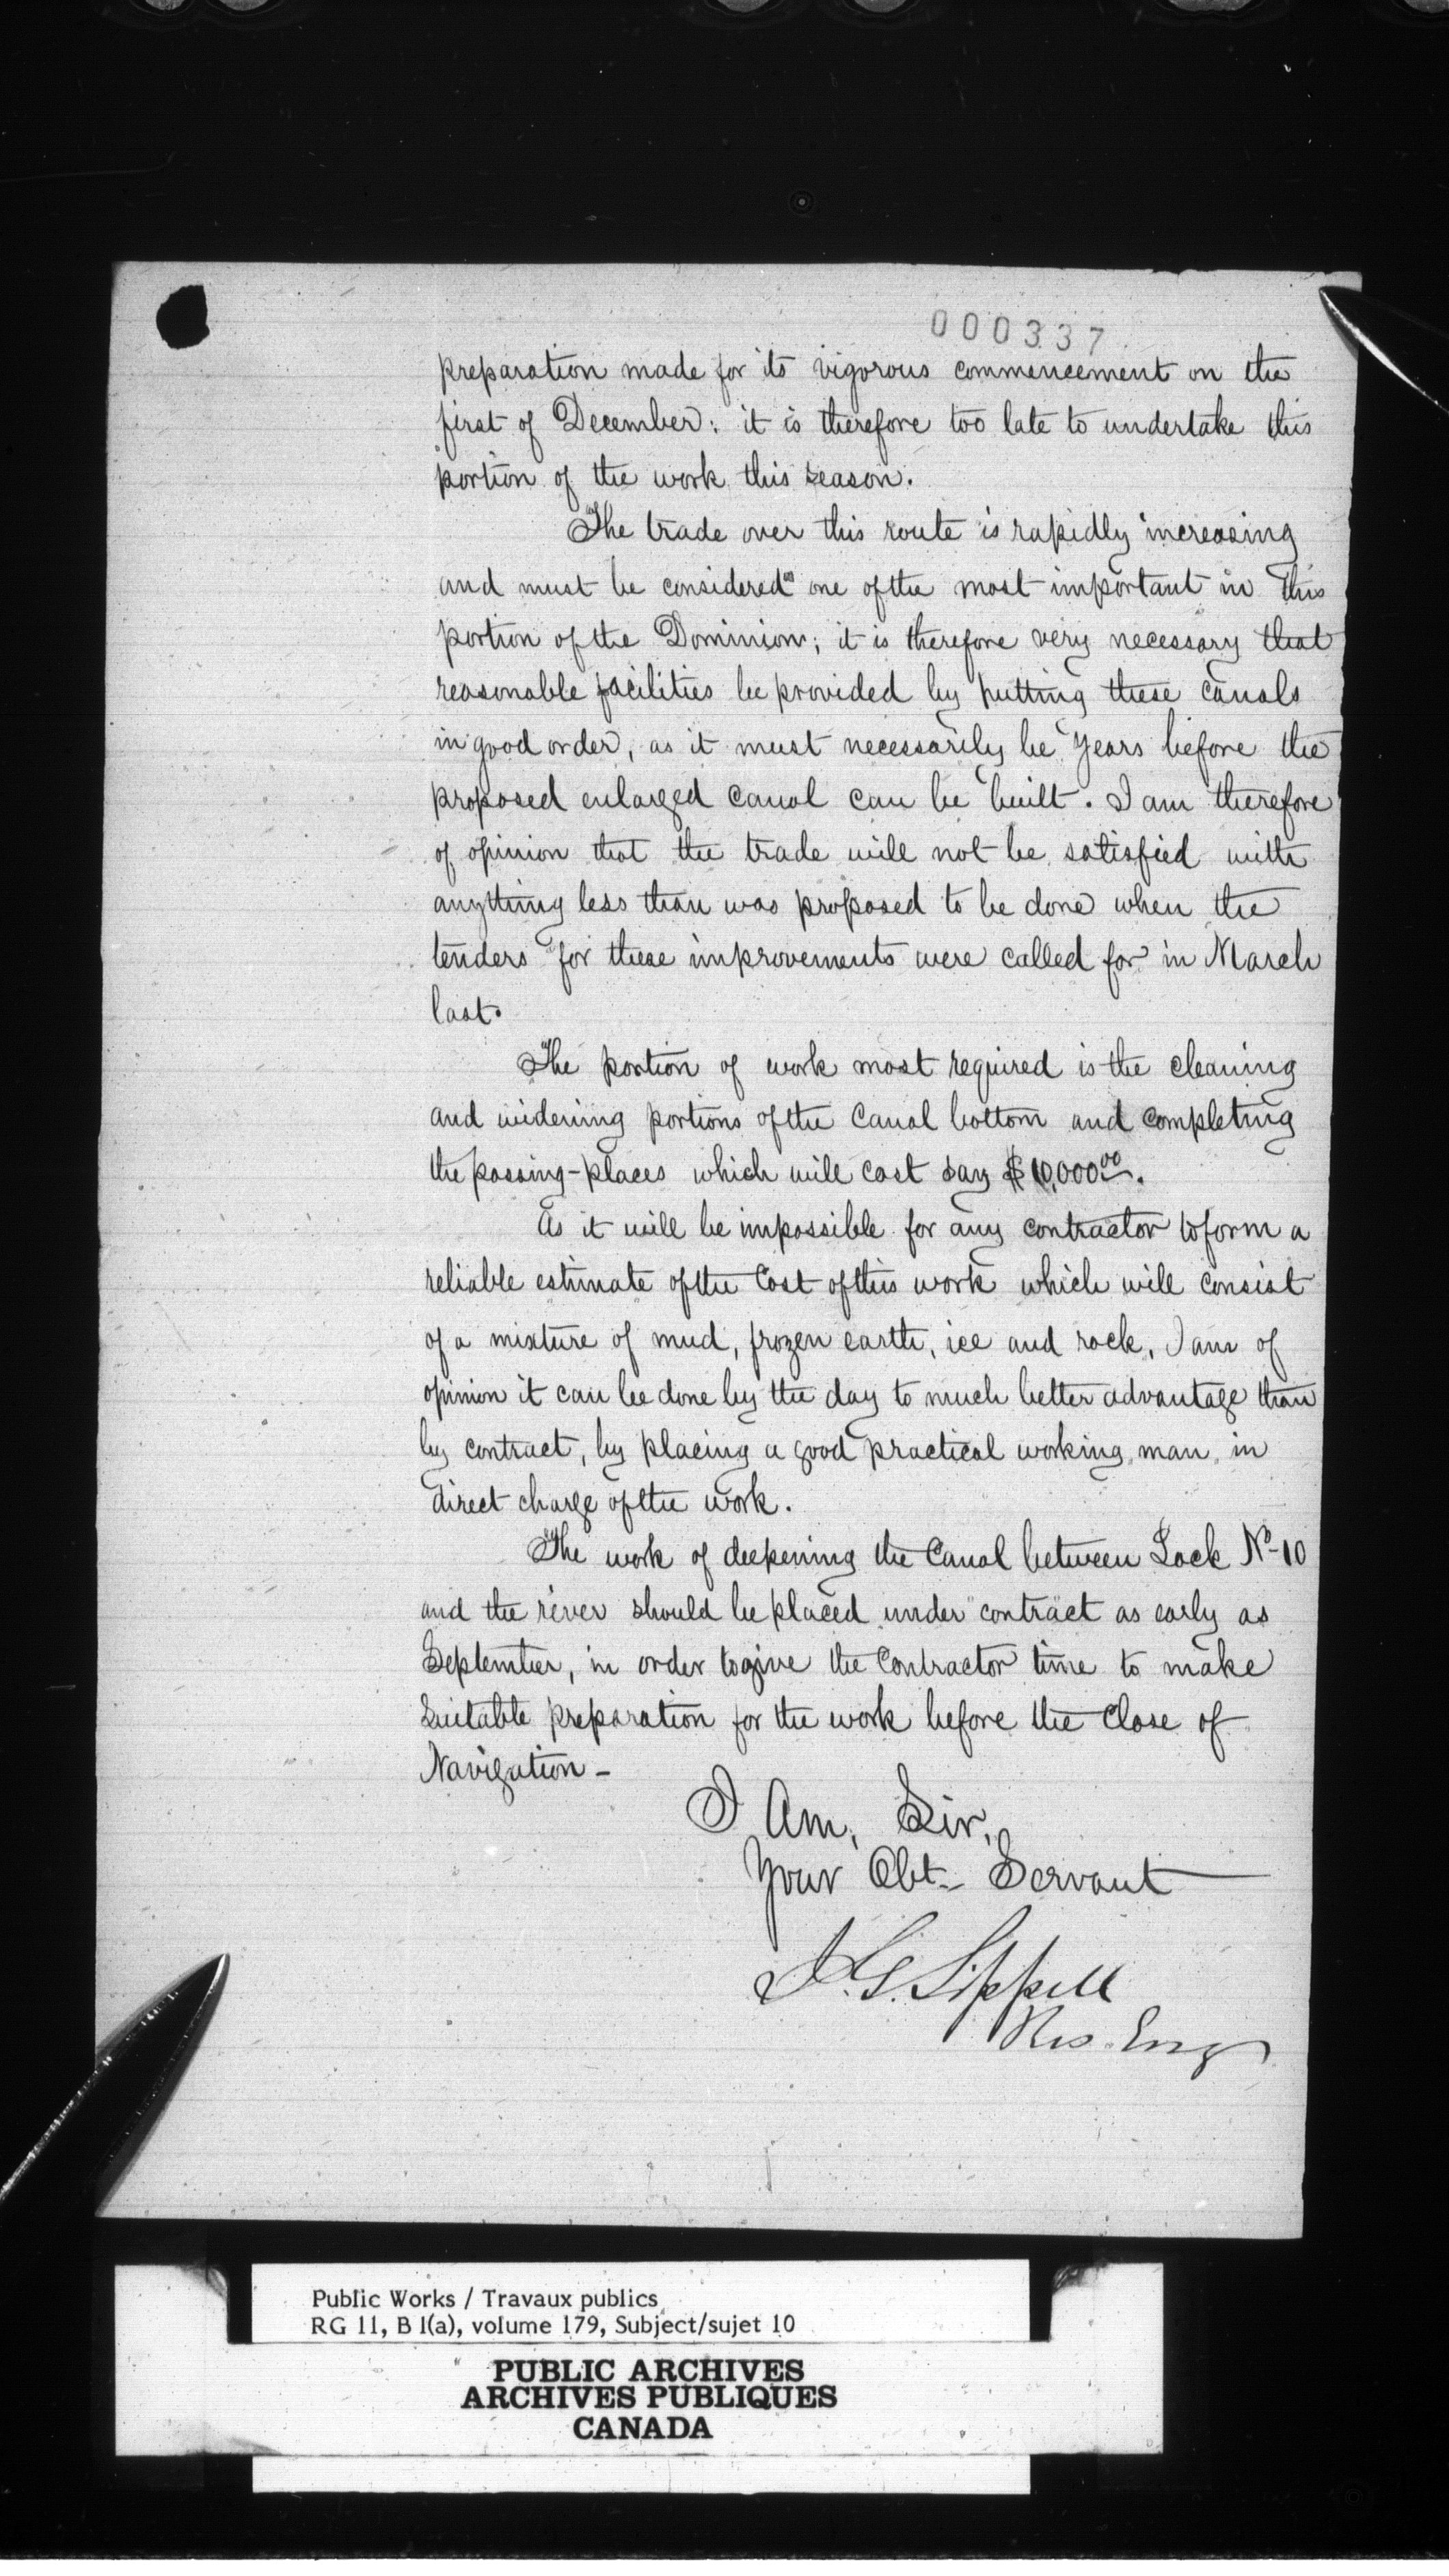 000337
preparation made for its vigorous commencement on the
first of December: it is therefore too late to undertake this
portion of the work this season.
The trade over this route is rapidly increasing
and must be considered as one of the most important in this
portion of the Dominion; it is therefore very necessary that
reasonable facilities be provided by putting these canals
in good order, as it must necessarily be years before the
proposed enlarged canal can be built. I am therefore
of opinion that the trade will not be satisfied with
anything less than was proposed to be done when the
tenders for these improvements were called for in March
last.
The portion of work most required is the cleaning
and widening portions of the Canal bottom and completing
the passing-places which will cost say $10,000.00.
As it will be impossible for any contractor to form a
reliable estimate of the Cost of this work which will consist
of a mixture of mud, frozen earth, ice and rock, I am of
opinion it can be done by the day to much better advantage than
by contract, by placing a good practical working man in
direct charge of the work.
The work of deepening the Canal between Lock No-10
and the river should be placed under contract as early as
September, in order to give the Contractor time to make
Suitable preparation for the work before the Close of
Navigation -
I Am, Sir,
Your Obt- Servant
J. G. Sippell
Res. Eng
Public Works / Travaux publics
RG 11, B 1(a), volume 179, Subject/sujet 10
PUBLIC ARCHIVES
ARCHIVES PUBLIQUES
CANADA